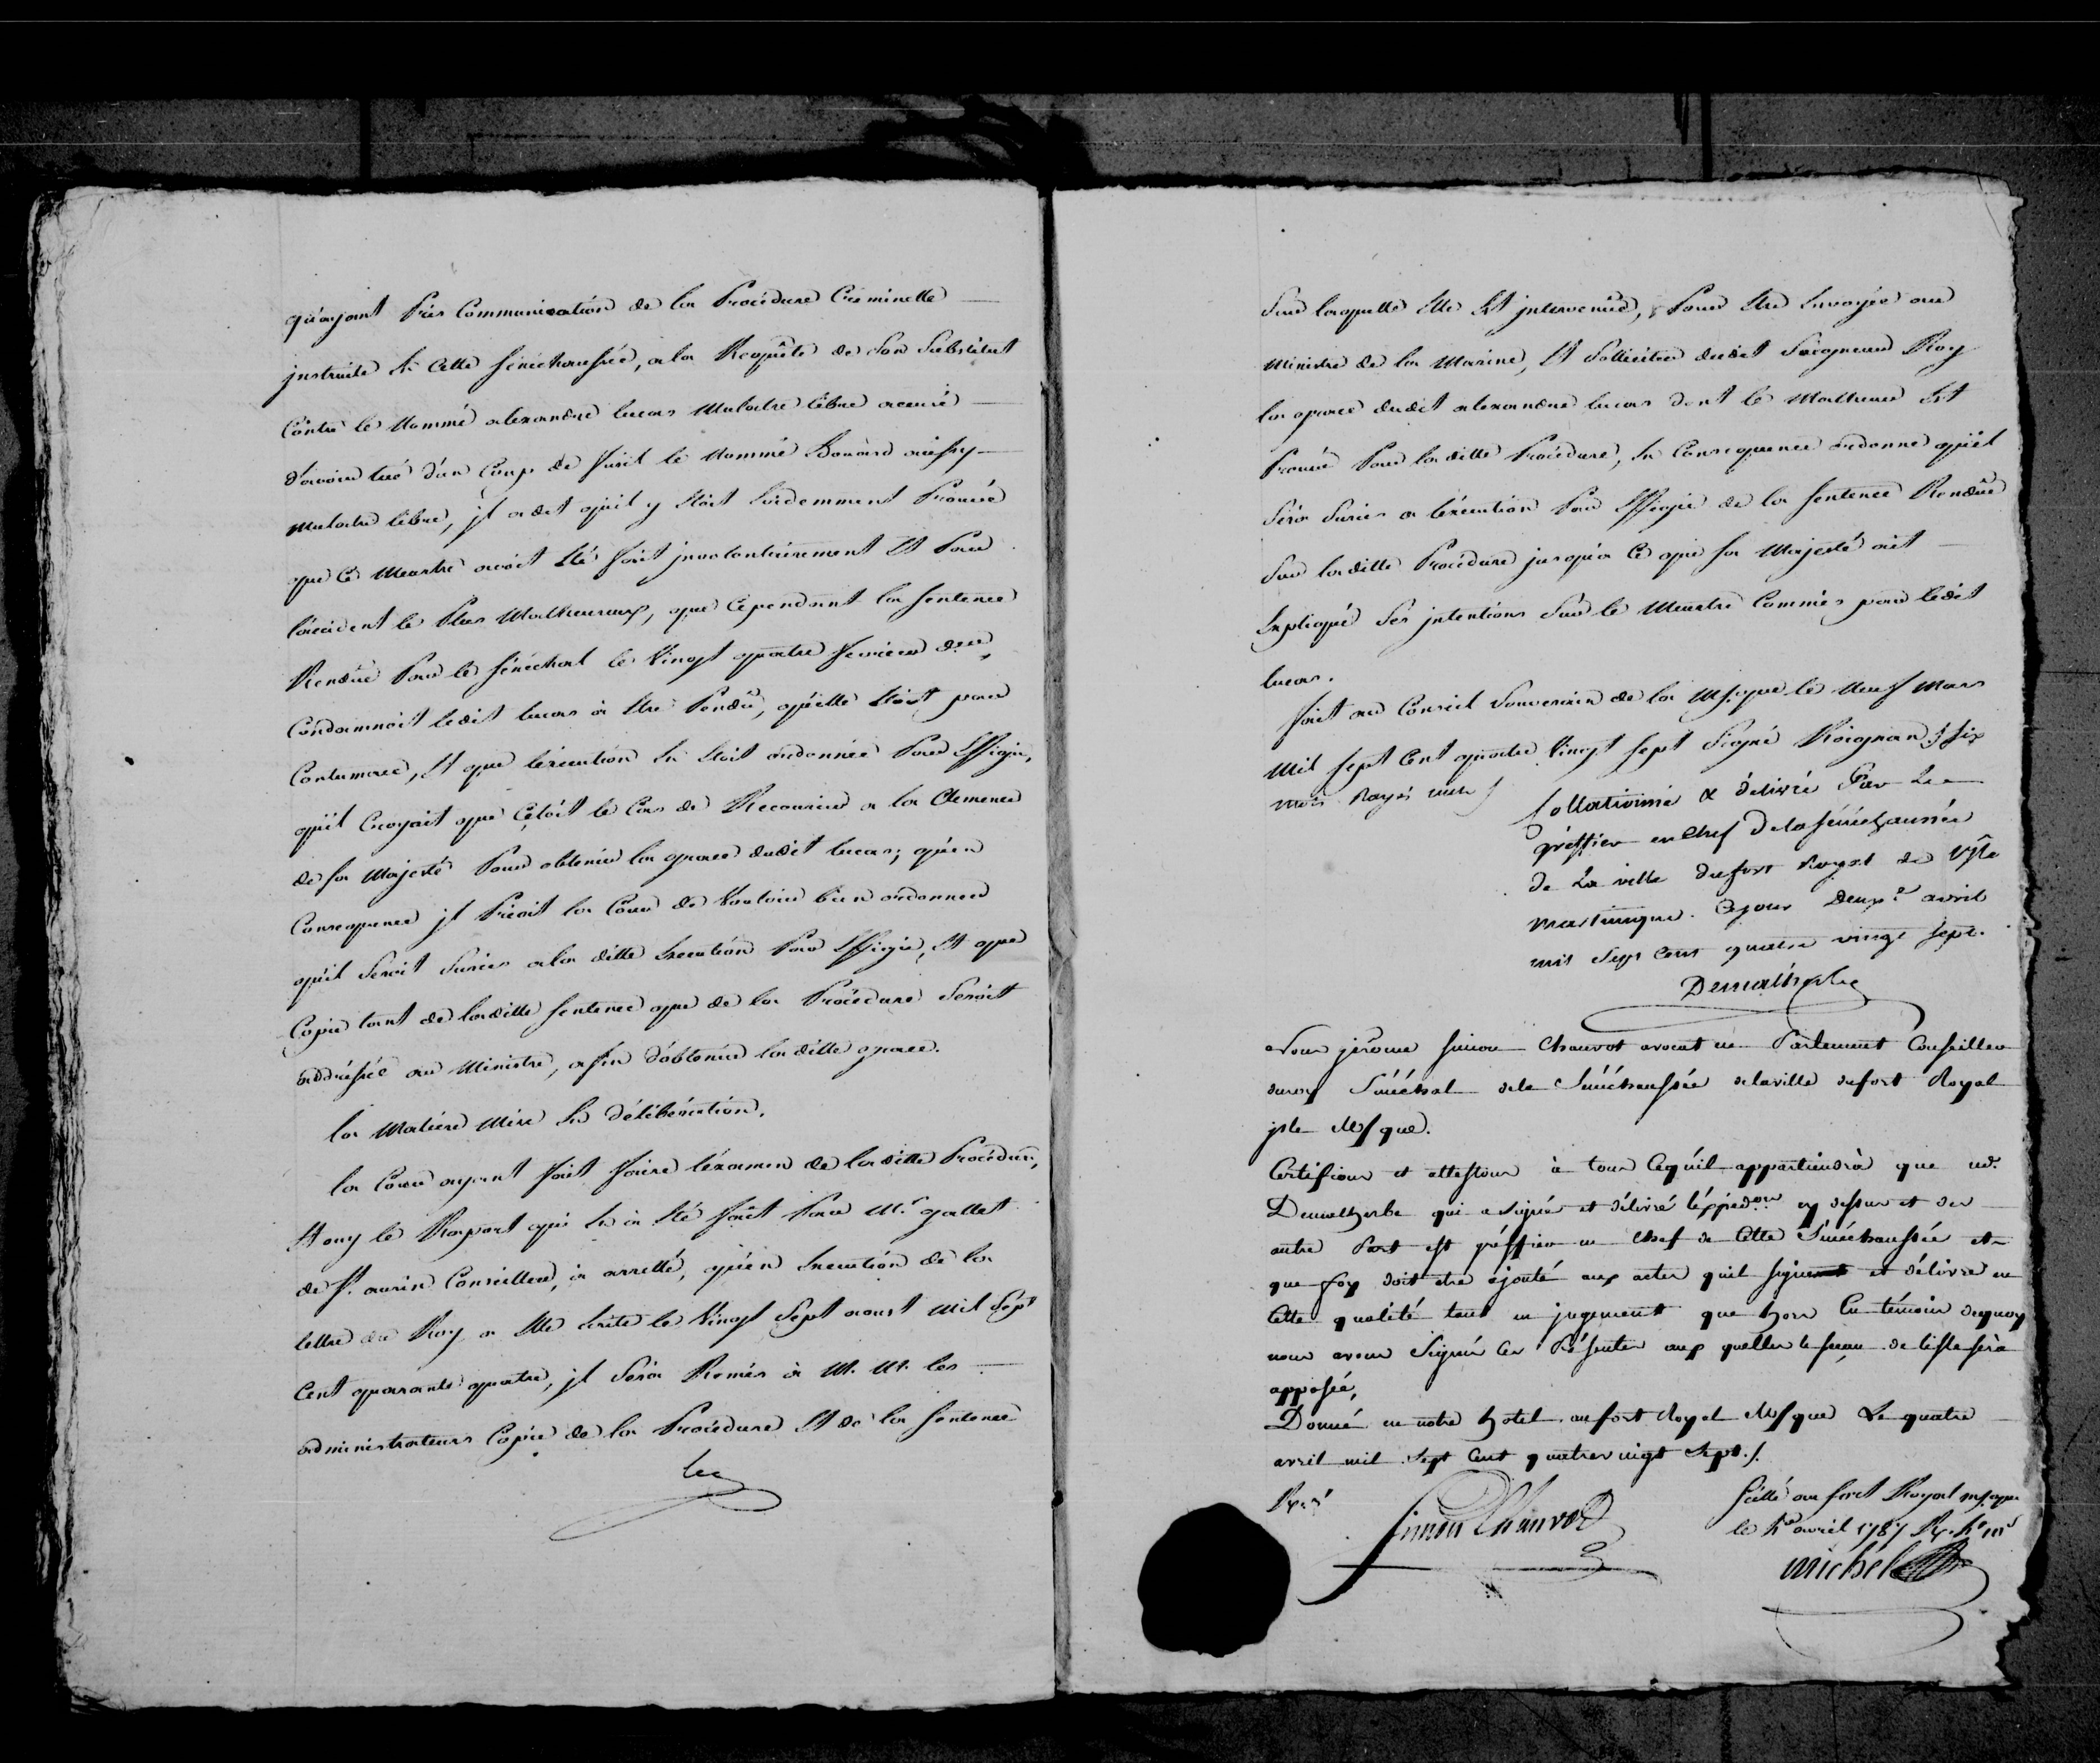 qu'ayant Pris Communication de la Procedure Criminelle
instruite En Cette sénéchaussée, a la Requête de Son Substitut
Contre le Nommé alexandre lucas Mulatre libre accusé
d'avoir tué d'un Coup de fusil le Nommé Bonard aussy
Mulatre libre, jl a dit qu'il y Etoit Evidemment Prouvé
que Ce Meurtre avoit Eté fait jnvolontairement Et Par
l'accident le Plus Malheureux, que Cependant la sentence
Rendüe Par le sénéchal le Vingt quatre fevrier der.er
Condamnoit ledit lucas à Etre Pendû, qu'elle Etoit par
Contumace, Et que l'execution En Etoit ordonnée Par Effigie,
qu'il Croyait que C'étoit le Cas de Recourir a la Clemence
de sa Majesté Pour obtenir la grace dudit lucas; qu'en
Consequence jl Prioit la Cour de Vouloir bien ordonner
qu'il Seroit Surcis a la ditte Execution Par Effigie, Et que
Copie tant de laditte sentence que de la Procédure Seroit
addressée au Ministre, afin d'obtenir la ditte grace.
la Matiere Mise En délibération.
la Cour ayant fait faire l'examen de laditte Procédure,
Et ouy le Raport qui En a Eté fait Par Mr. gallet
de St. aurin Conseiller, à arretté, qu'en Execution de la
lettre du Roy a Elle Ecrite le Vingt Sept aoust Mil Sept
Cent quarante quatre, jl Sera Remis à M. M. les
administrateurs Copie de la Procédure Et de la sentence
Sur laquelle Elle Est jntervenüe, Pour Etre Envoyée au
Ministre de la Marine, Et Solliciter dudit Seigneur Roy
la grace dudit alexandre lucas dont le Malheur Est
Prouvé Par laditte Procédure, En Consequence ordonne qu'il
Sera Surcis a l'éxecution Par Effigie de la sentence Rendüe
Sur laditte Procédure jusqu'a Ce que sa Majesté ait
Expliqué Ses jntentions Sur le Meurtre Commis par ledit
lucas.
fait au Conseil Souverain de la M/que le Neuf Mars
Mil sept Cent quatre Vingt sept Signé Roignan /. six
mots Rayés nuls /
Collationné & délivré Par Le
gréffier en Chef De la sénéchaussée
de La ville du fort Royal de l'isle
martinique. Ce jour Deux.e avril
mil Sept Cent quatre vingt Sept.
Demalherbe
Nous jérôme simon Chauvot avocat en Parlement Conseiller
du roy Sénéchal de la Sénéchaussée de la ville du fort Royal
jsle M/que.
Certifions et attestons à tous Ceq'uil appartiendrà que me.
Demalherbe qui a signé et délivré l'éxpéd.on cy dessus et des
autre Part est gréffier en Chef de Cette Sénéchaussée et
que foy doit etre ajouté aux actes quil signe et délivre en
Cette qualité tant en jugement que hors En témoin dequoy
nous avons Signé Ces Présentes aux quelles le sceau de l'isle serà
apposée,
Donné en notre hotel au fort Royal M/que Le quatre
avril mil Sept Cent quatrevingt Sept./.
Simon Chauvot
scéllé au fort Royal m/que
le 4 avril 1787
michel